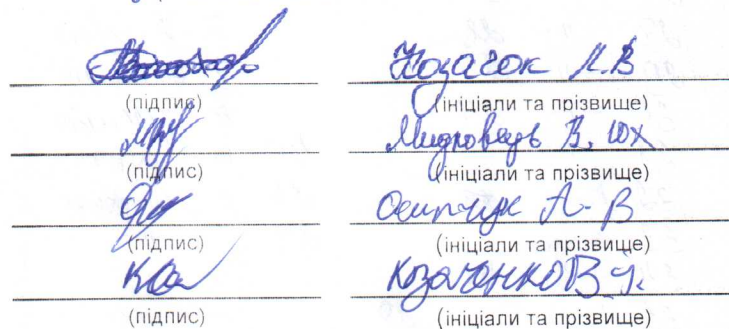 Козачок Л.В
(підпис) (ініціали та прізвище)
В. Юх
(підпис) (ініціали та прізвище)
Осипчук А-В
(підпис) (ініціали та прізвище)
Козаченко В.
(підпис) (ініціали та прізвище)